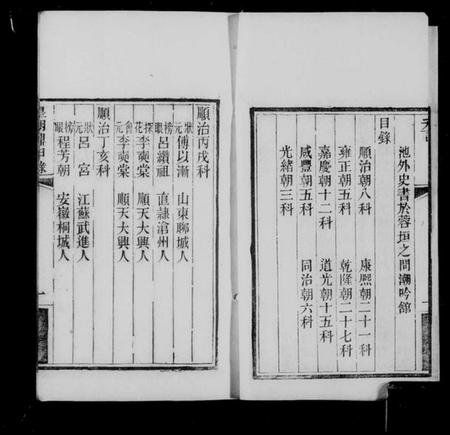 池外史書於蓉垣之問潮吟館
目錄
順治朝八科 康熙朝二十一科
雍正朝五科 乾隆朝二十七科
嘉慶朝十二科 道光朝十五科
咸豐朝五科 同治朝六科
光緒朝三科
順治丙戌科
狀元 傅以漸 山東聊城人
榜眼 呂纘祖 直隸滄州人
探花 李奭棠 順天大興人
會元 李奭棠 順天大興人
順治丁亥科
狀元 呂宮 江蘇武進人
榜眼 程芳朝 安徽桐城人